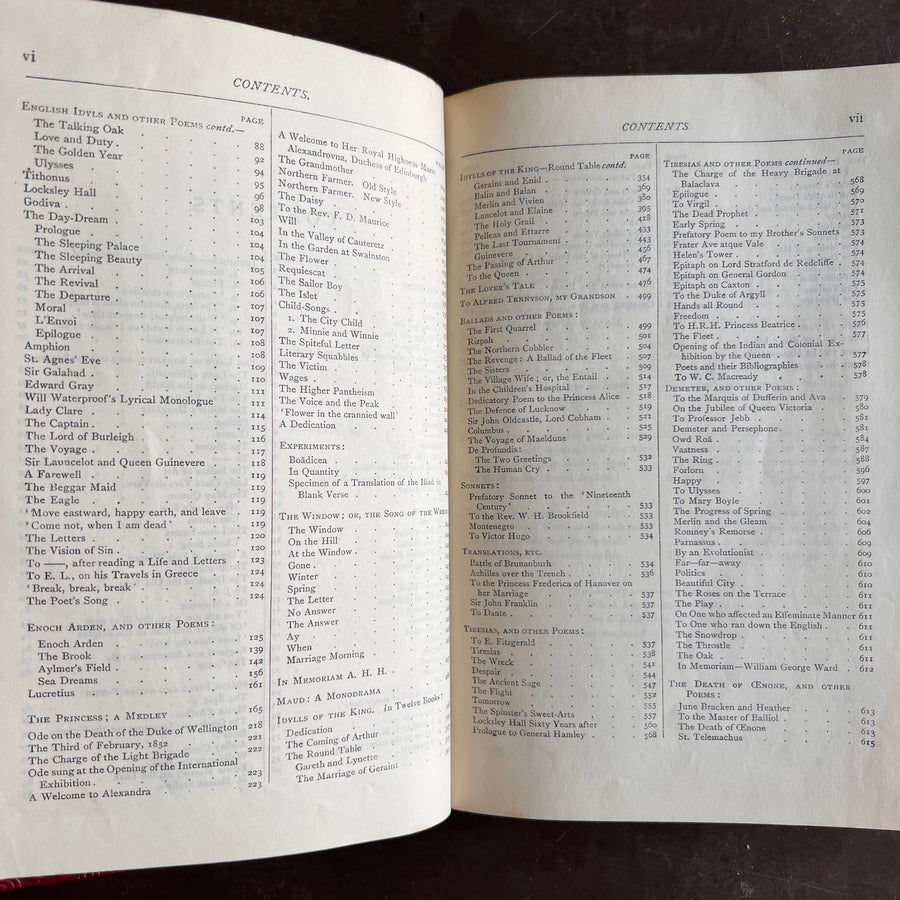 vi
CONTENTS.
ENGLISH IDYLS AND OTHER POEMS contd.—
PAGE
The Talking Oak 88
Love and Duty 92
The Golden Year 94
Ulysses 95
Tithonus 96
Locksley Hall 98
Godiva 103
The Day-Dream 104
Prologue 104
The Sleeping Palace 104
The Sleeping Beauty 105
The Arrival 106
The Revival 106
The Departure 107
Moral 107
L'Envoi 107
Epilogue 108
Amphion 108
St. Agnes' Eve 109
Sir Galahad 110
Edward Gray 111
Will Waterproof's Lyrical Monologue 111
Lady Clare 114
The Captain 115
The Lord of Burleigh 116
The Voyage 117
Sir Launcelot and Queen Guinevere 118
A Farewell 119
The Beggar Maid 119
The Eagle 119
'Move eastward, happy earth, and leave 119
'Come not, when I am dead' 119
The Letters 120
The Vision of Sin 120
To ——, after reading a Life and Letters 123
To E. L., on his Travels in Greece 124
'Break, break, break' 124
The Poet's Song 124
ENOCH ARDEN, AND OTHER POEMS:
Enoch Arden 125
The Brook 139
Aylmer's Field 142
Sea Dreams 156
Lucretius 161
THE PRINCESS; A MEDLEY 165
Ode on the Death of the Duke of Wellington 218
The Third of February, 1852 221
The Charge of the Light Brigade 222
Ode sung at the Opening of the International
Exhibition 223
A Welcome to Alexandra 223
A Welcome to Her Royal Highness Marie
Alexandrovna, Duchess of Edinburgh
The Grandmother
Northern Farmer. Old Style
Northern Farmer. New Style
The Daisy
To the Rev. F. D. Maurice
Will
In the Valley of Cauteretz
In the Garden at Swainston
The Flower
Requiescat
The Sailor Boy
The Islet
Child-Songs
1. The City Child
2. Minnie and Winnie
The Spiteful Letter
Literary Squabbles
The Victim
Wages
The Higher Pantheism
The Voice and the Peak
'Flower in the crannied wall'
A Dedication
EXPERIMENTS:
Boädicea
In Quantity
Specimen of a Translation of the Iliad in
Blank Verse
THE WINDOW; OR, THE SONG OF THE
The Window
On the Hill
At the Window
Gone
Winter
Spring
The Letter
No Answer
The Answer
Ay
When
Marriage Morning
IN MEMORIAM A. H. H.
MAUD: A MONODRAMA
IDYLLS OF THE KING. In Twelve Books:
Dedication
The Coming of Arthur
The Round Table
Gareth and Lynette
The Marriage of Geraint
CONTENTS
vii
PAGE
IDYLLS OF THE KING—Round Table contd.
Geraint and Enid 354
Balin and Balan 369
Merlin and Vivien 380
Lancelot and Elaine 395
The Holy Grail 418
Pelleas and Ettarre 433
The Last Tournament 443
Guinevere 456
The Passing of Arthur 467
To the Queen 474
THE LOVER'S TALE 476
TO ALFRED TENNYSON, MY GRANDSON 499
BALLADS AND OTHER POEMS:
The First Quarrel 499
Rizpah 501
The Northern Cobbler 504
The Revenge: A Ballad of the Fleet 507
The Sisters 509
The Village Wife; or, the Entail 514
In the Children's Hospital 517
Dedicatory Poem to the Princess Alice 518
The Defence of Lucknow 519
Sir John Oldcastle, Lord Cobham 521
Columbus 525
The Voyage of Maeldune 529
De Profundis:
The Two Greetings 532
The Human Cry 533
SONNETS:
Prefatory Sonnet to the 'Nineteenth
Century' 533
To the Rev. W. H. Brookfield 533
Montenegro 533
To Victor Hugo 534
TRANSLATIONS, ETC.
Battle of Brunanburh 534
Achilles over the Trench 536
To the Princess Frederica of Hanover on
her Marriage 537
Sir John Franklin 537
To Dante 537
TIRESIAS, AND OTHER POEMS:
To E. Fitzgerald 537
Tiresias 538
The Wreck 541
Despair 544
The Ancient Sage 547
The Flight 552
Tomorrow 555
The Spinster's Sweet-Arts 557
Locksley Hall Sixty Years after 560
Prologue to General Hamley 568
PAGE
TIRESIAS AND OTHER POEMS continued—
The Charge of the Heavy Brigade at
Balaclava 568
Epilogue 569
To Virgil 570
The Dead Prophet 571
Early Spring 573
Prefatory Poem to my Brother's Sonnets 573
Frater Ave atque Vale 574
Helen's Tower 574
Epitaph on Lord Stratford de Redcliffe 574
Epitaph on General Gordon 574
Epitaph on Caxton 575
To the Duke of Argyll 575
Hands all Round 575
Freedom 575
To H.R.H. Princess Beatrice 576
The Fleet 577
Opening of the Indian and Colonial Ex-
hibition by the Queen 577
Poets and their Bibliographies 578
To W. C. Macready 578
DEMETER, AND OTHER POEMS:
To the Marquis of Dufferin and Ava 579
On the Jubilee of Queen Victoria 580
To Professor Jebb 581
Demeter and Persephone 581
Owd Roä 584
Vastness 587
The Ring 588
Forlorn 596
Happy 597
To Ulysses 600
To Mary Boyle 601
The Progress of Spring 602
Merlin and the Gleam 604
Romney's Remorse 606
Parnassus 609
By an Evolutionist 609
Far—far—away 610
Politics 610
Beautiful City 610
The Roses on the Terrace 611
The Play 611
On One who affected an Effeminate Manner 611
To One who ran down the English 611
The Snowdrop 611
The Throstle 611
The Oak 611
In Memoriam—William George Ward 612
THE DEATH OF ŒNONE, AND OTHER
POEMS:
June Bracken and Heather 613
To the Master of Balliol 613
The Death of Œnone 613
St. Telemachus 615